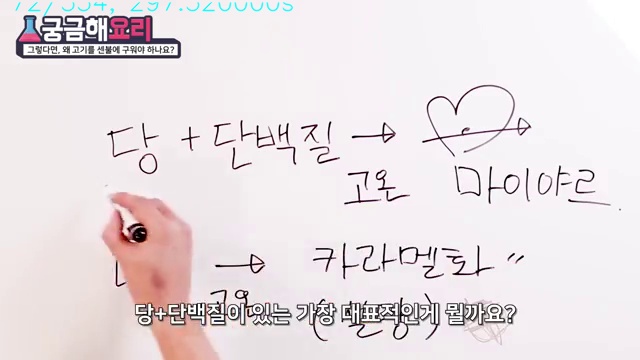 72/354, 297.520000s
궁금해요리
그렇다면, 왜 고기를 센불에 구워야 하나요?
당 + 단백질 →
고온 마이야르
→ 카라멜화 "
고온
당+단백질이 있는 가장 대표적인게 뭘까요?